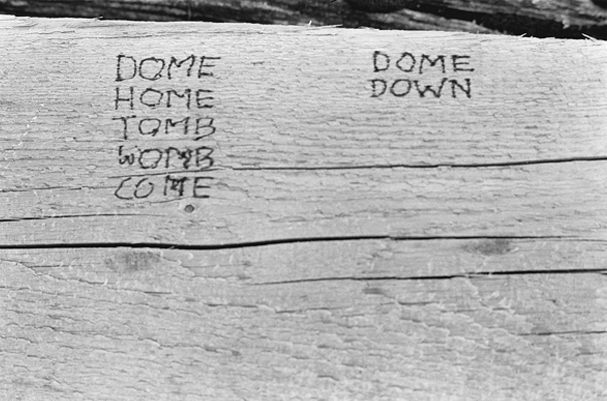 DOME
HOME
TOMB
WOMB
COME
DOME
DOWN